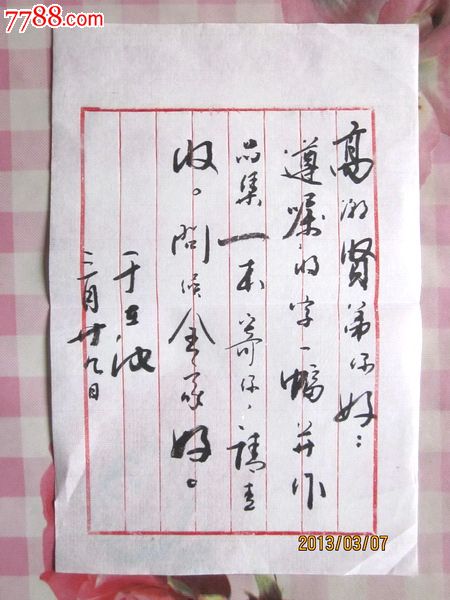 7788.com
中国收藏热线
高 贤弟你好：
遵嘱将字一幅并作
品集一本寄你，请查
收。问候全家好。
于 波
三月廿九日
2013/03/07